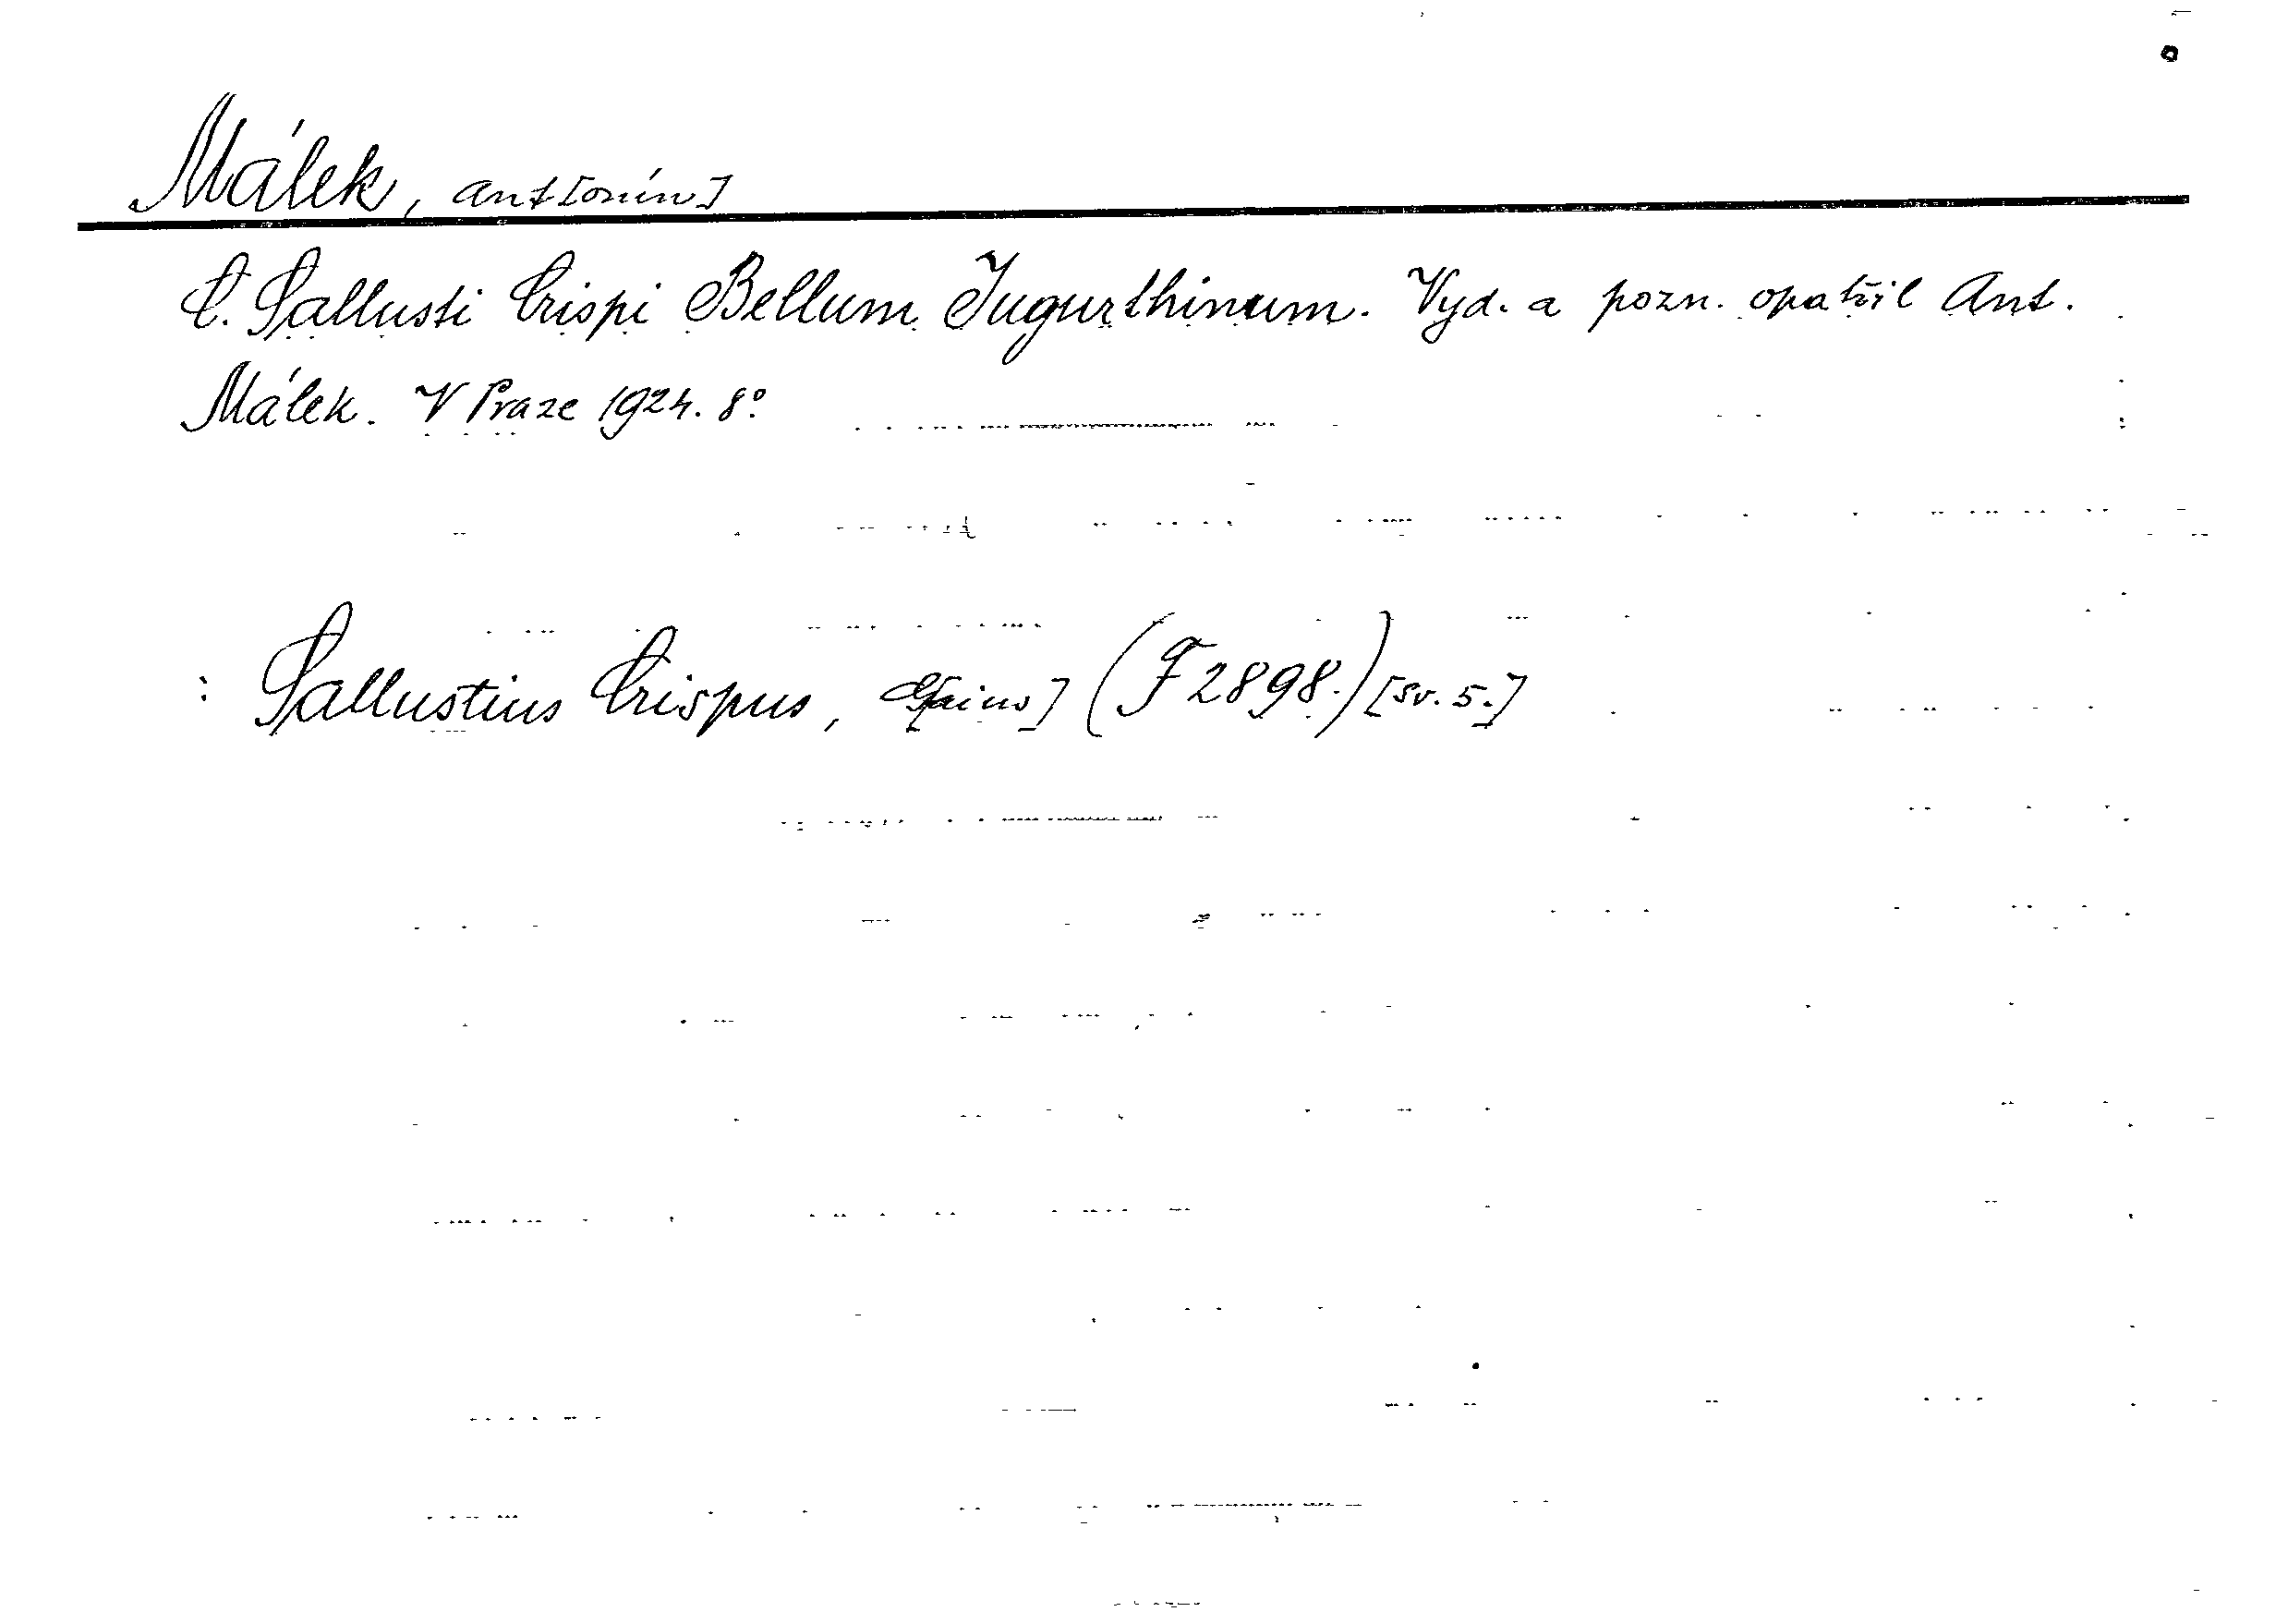 Málek, Ant[onín]
C. Sallusti Crispi Bellum Jugurthinum. Vyd. a pozn. opatřil Ant.
Málek. V Praze 1924. 8°.
: Sallustius Crispus, G[aius] (F 2898.) [sv. 5.]